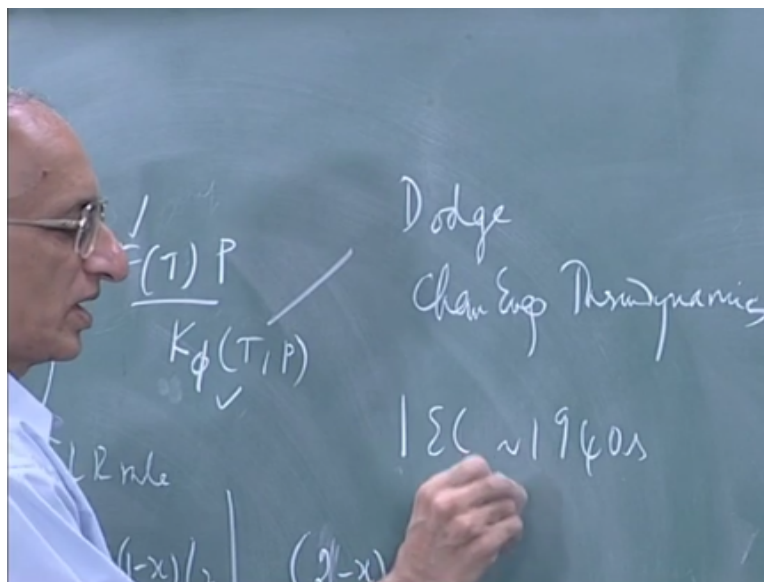 (T) P
K_φ (T, P)
LR rule
(1-x)/2
(2-x)
Dodge
Chem Engg Thermodynamics
IEC ~1940s